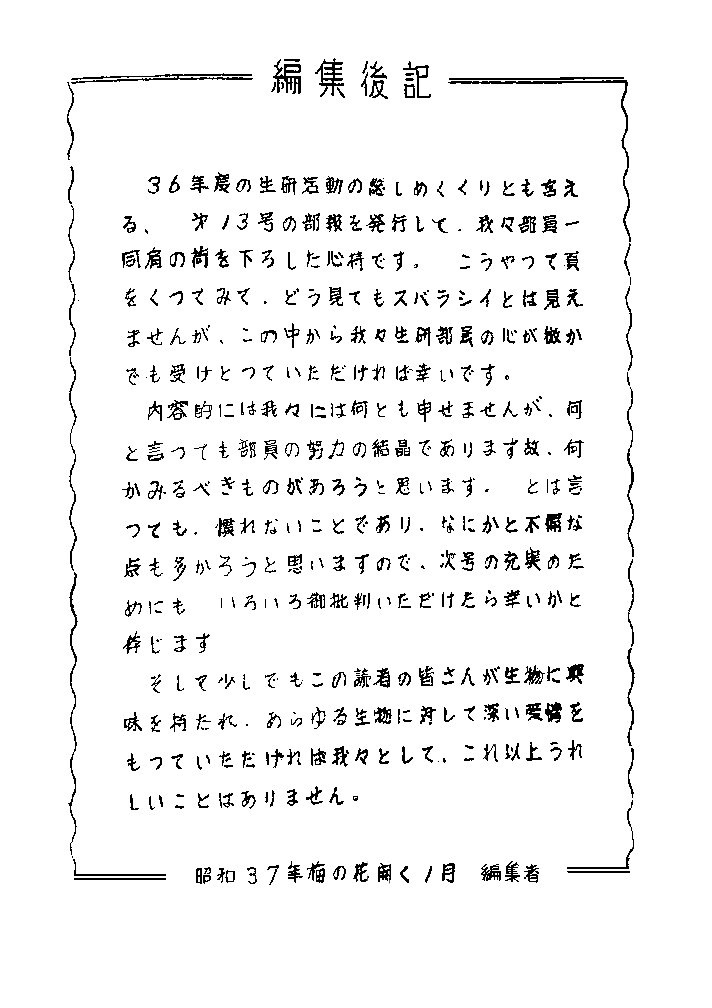 編集後記
36年度の生研活動の総しめくくりとも言え
る、 第13号の部報を発行して、我々部員一
同肩の荷を下ろした心持です。 こうやつて頁
をくつてみて、どう見てもスバラシイとは見え
ませんが、この中から我々生研部員の心が微か
でも受けとつていただければ幸いです。
内容的には我々には何とも申せませんが、何
と言つても部員の努力の結晶であります故、何
かみるべきものがあろうと思います。 とは言
つても、慣れないことであり、なにかと不備な
点も多かろうと思いますので、次号の充実のた
めにも いろいろ御批判いただけたら幸いかと
存じます
そして少しでもこの読者の皆さんが生物に興
味を持たれ、あらゆる生物に対して深い愛情を
もつていただければ我々として、これ以上うれ
しいことはありません。
昭和37年梅の花開く1月 編集者